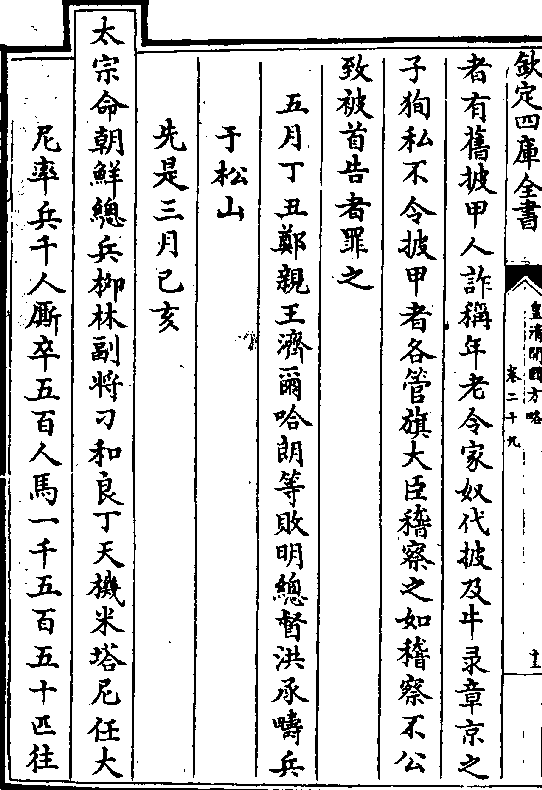 欽定四庫全書
皇清開國方略
卷二十九
十三
者有舊披甲人詐稱年老令家奴代披及牛录章京之
子狥私不令披甲者各管旗大臣稽察之如稽察不公
致被首告者罪之
五月丁丑鄭親王濟爾哈朗等敗明總督洪承疇兵
于松山
先是三月己亥
太宗命朝鮮總兵柳林副將刁和良丁天機米塔尼任大
尼率兵千人厮卒五百人馬一千五百五十匹往